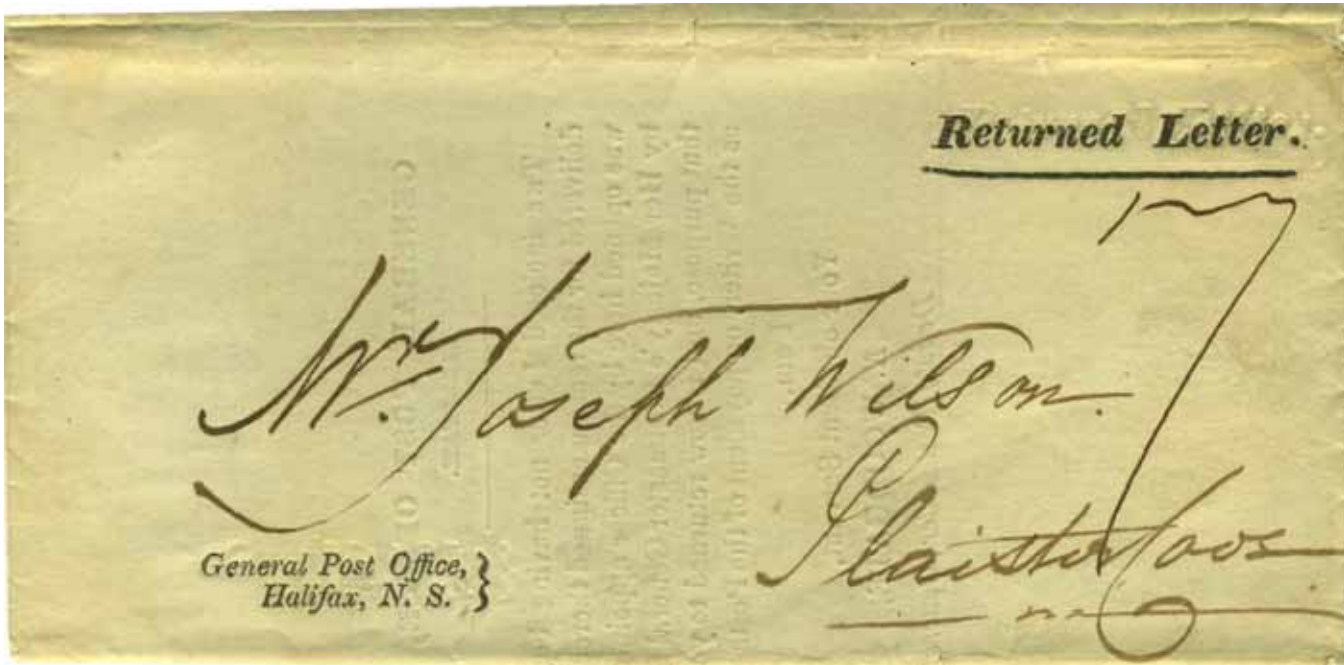 Returned Letter.
7
Mr. Joseph Wilson.
Plaister Cove
General Post Office,
Halifax, N. S.